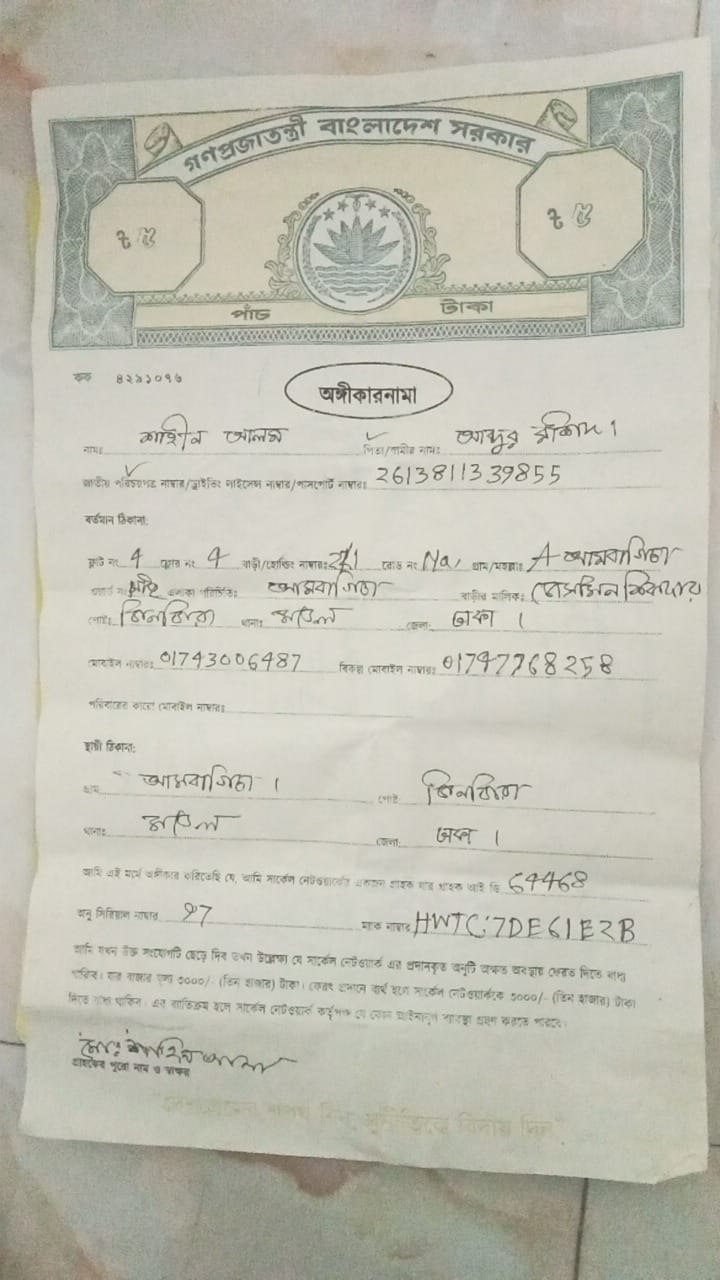 গণপ্রজাতন্ত্রী বাংলাদেশ সরকার
৳ ৫ ৳ ৫
পাঁচ টাকা
কক ৪২৯১০৭৬
অঙ্গীকারনামা
নাম: শাহীন আলম পিতা/স্বামীর নাম: আব্দুর রশিদ।
জাতীয় পরিচয়পত্র নাম্বার/ড্রাইভিং লাইসেন্স নাম্বার/পাসপোর্ট নাম্বার: 2613811339855
বর্তমান ঠিকানা:
ফ্লাট নং 4 ফ্লোর নং 4 বাড়ী/হোল্ডিং নাম্বার: রোড নং Na, গ্রাম/মহল্লা: A-আমবাগিচা
এলাকা পরিচিতি: আমবাগিচা বাড়ীর মালিক:
পোষ্ট: জিনজিরা থানা: মডেল জেলা: ঢাকা।
মোবাইল নাম্বার: 01743006487 বিকল্প মোবাইল নাম্বার: 01797768258
পরিবারের কারো মোবাইল নাম্বার:
স্থায়ী ঠিকানা:
গ্রাম: আমবাগিচা। পোষ্ট: জিনজিরা
থানা: মডেল জেলা: ঢাকা।
আমি এই মর্মে অঙ্গীকার করিতেছি যে, আমি সার্কেল নেটওয়ার্কের একজন গ্রাহক যার গ্রাহক আই ডি 64468
অনু সিরিয়াল নাম্বার 97 ম্যাক নাম্বার HWTC:7DE61E2B
আমি যখন উক্ত সংযোগটি ছেড়ে দিব তখন উল্লেখ্য যে সার্কেল নেটওয়ার্ক এর প্রদানকৃত অনুটি অক্ষত অবস্থায় ফেরত দিতে বাধ্য
থাকিব। যার বাজার মূল্য ৩০০০/- (তিন হাজার) টাকা। ফেরৎ প্রদানে ব্যর্থ হলে সার্কেল নেটওয়ার্ককে ৩০০০/- (তিন হাজার) টাকা
দিতে বাধ্য থাকিব। এর ব্যতিক্রম হলে সার্কেল নেটওয়ার্ক কর্তৃপক্ষ যে কোন আইনানুগ ব্যবস্থা গ্রহণ করতে পারবে।
মোঃ শাহিন আলম
গ্রাহকের পুরো নাম ও স্বাক্ষর
"দেশপ্রেমের শপথ নিন, দুর্নীতিকে বিদায় দিন"